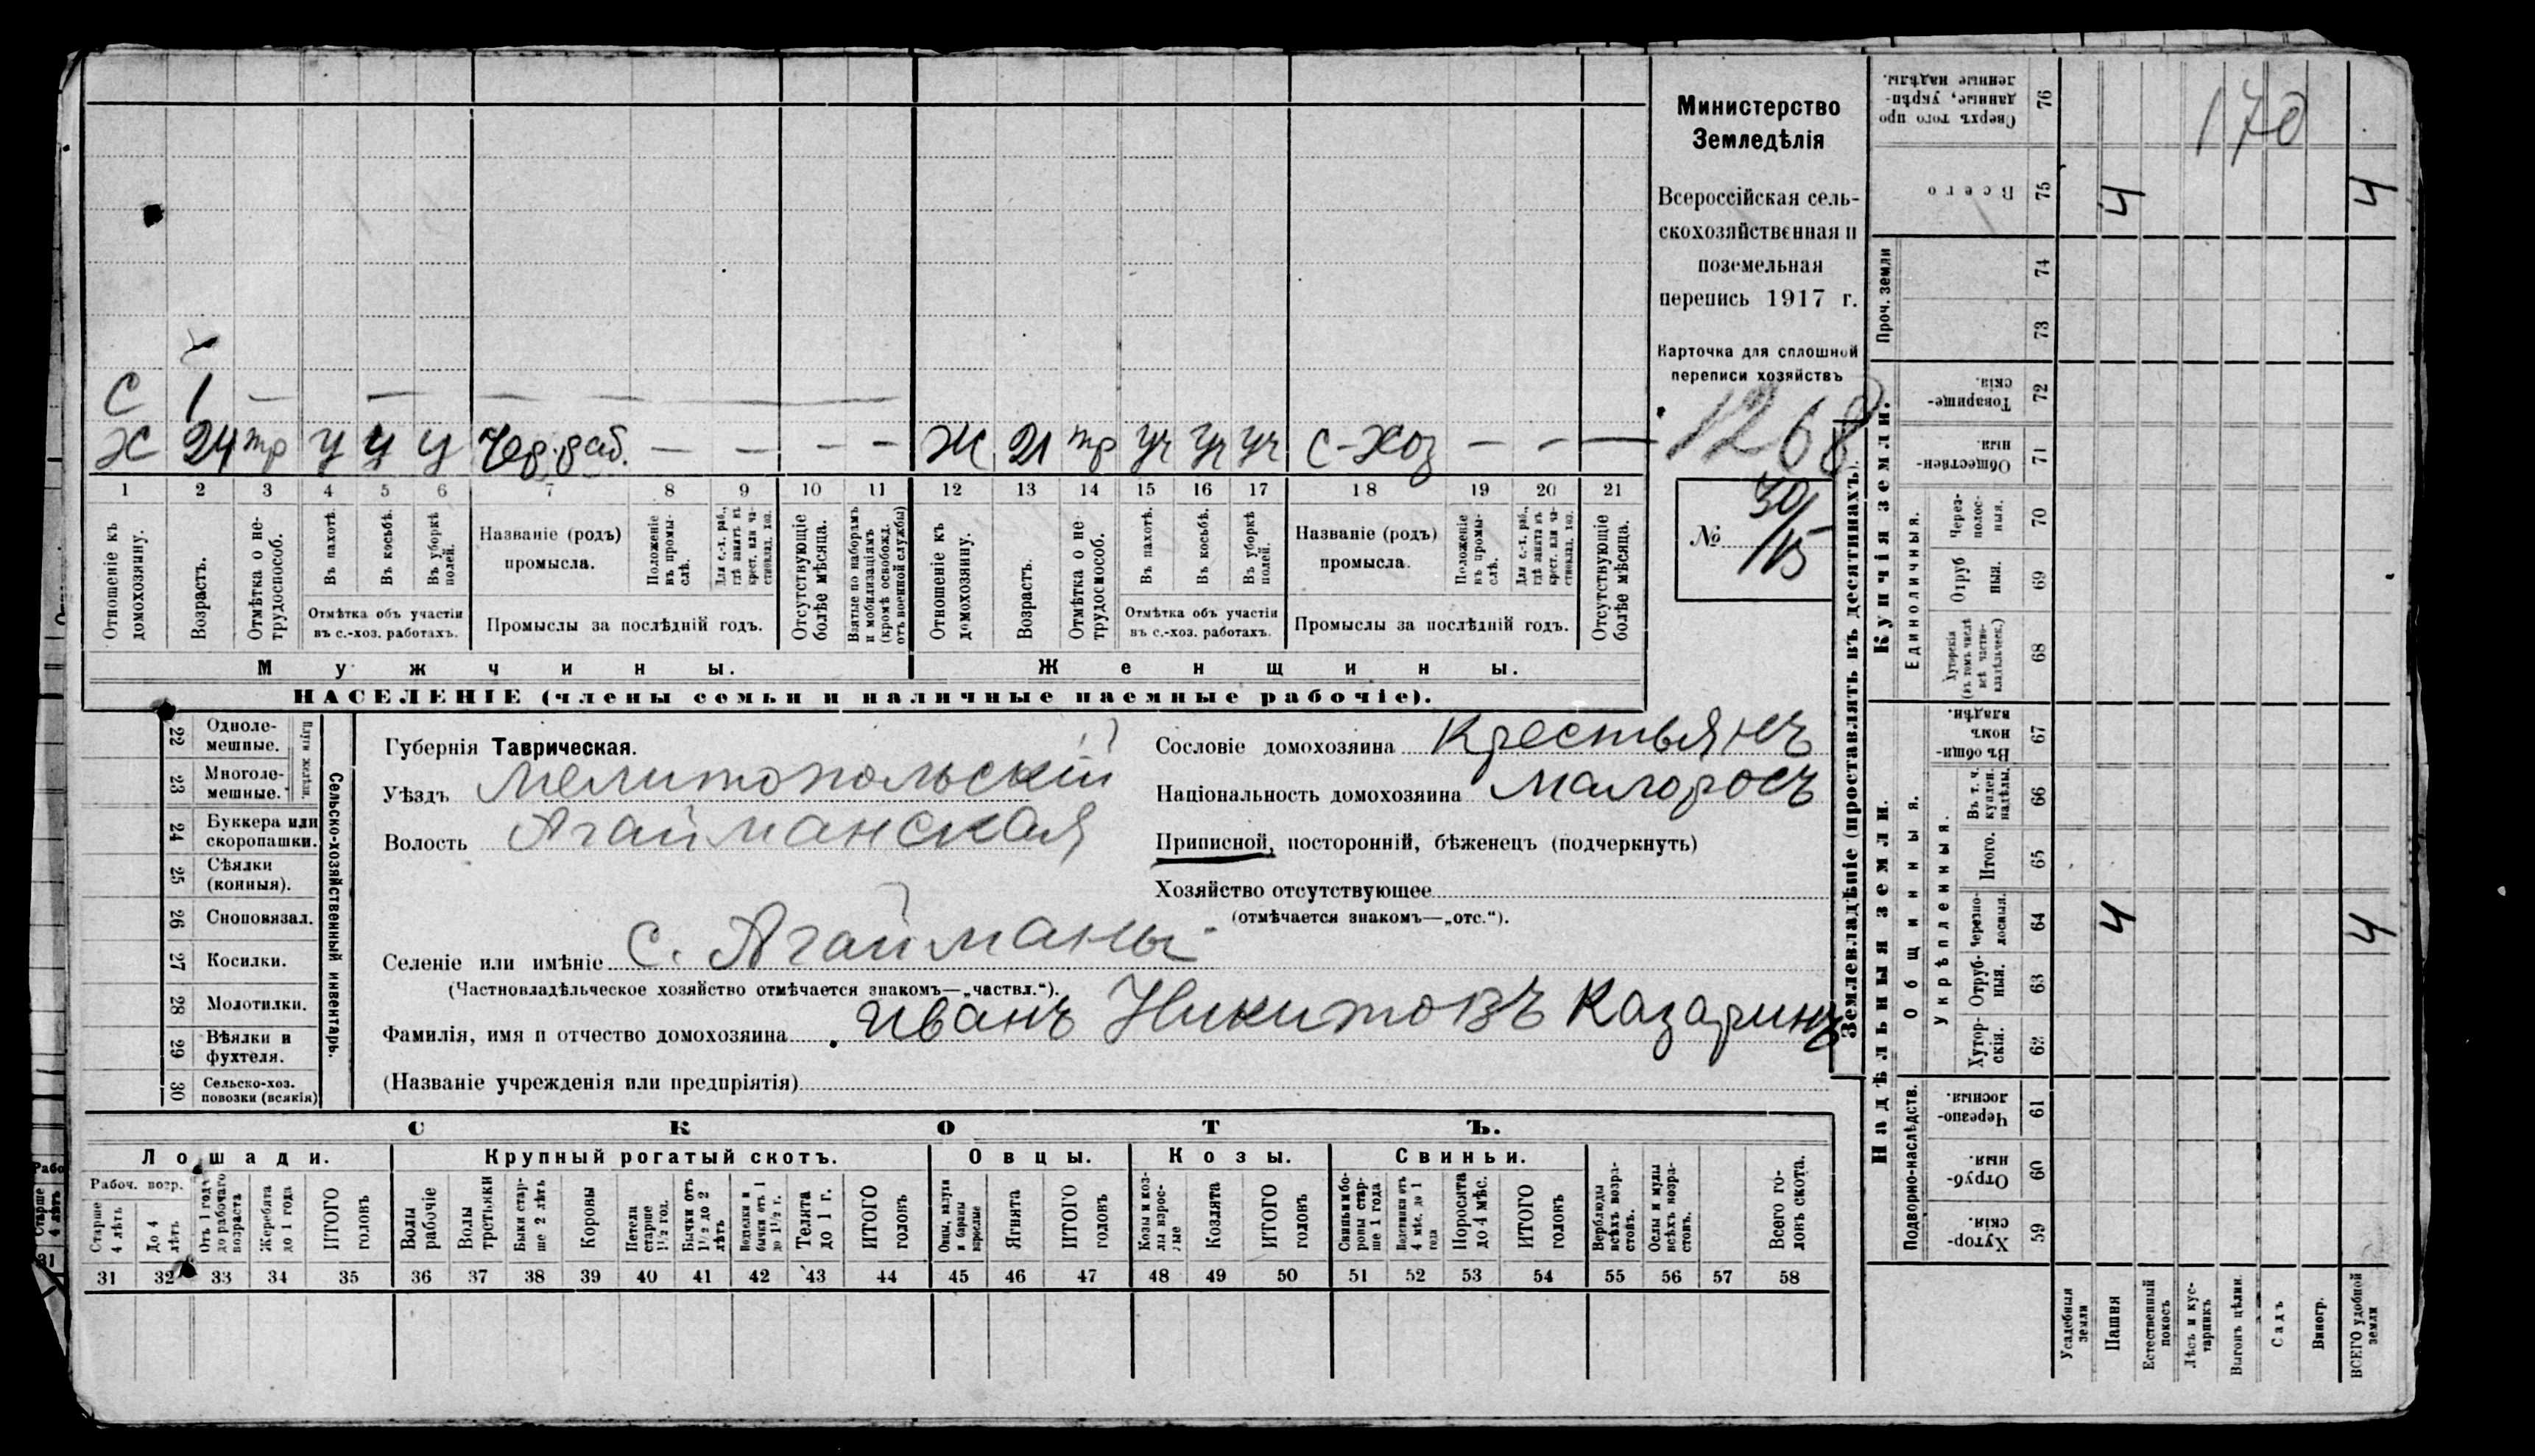 С 1 — — — — —
Х 24 тр у у у Чер. раб. — — — — Ж 21 тр уч уч уч С-Хоз — — —
1 2 3 4 5 6 7 8 9 10 11 12 13 14 15 16 17 18 19 20 21
Отношеніе къ домохозяину.
Возрастъ.
Отмѣтка о не-трудоспособ.
Въ пахотѣ.
Въ косьбѣ.
Въ уборкѣ полей.
Отмѣтка объ участіи
въ с.-хоз. работахъ.
Названіе (родъ)
промысла.
Положеніе въ промы-слѣ.
Для с.-х. раб., гдѣ занятъ въ крест. или ча-стновлад. хоз.
Промыслы за послѣдній годъ.
Отсутствующіе болѣе мѣсяца.
Взятые по наборамъ и мобилизаціямъ (кромѣ освобожд. отъ военной службы)
Отношеніе къ домохозяину.
Возрастъ.
Отмѣтка о не-трудоспособ.
Въ пахотѣ.
Въ косьбѣ.
Въ уборкѣ полей.
Отмѣтка объ участіи
въ с.-хоз. работахъ.
Названіе (родъ)
промысла.
Положеніе въ промы-слѣ.
Для с.-х. раб., гдѣ занята въ крест. или ча-стновлад. хоз.
Промыслы за послѣдній годъ.
Отсутствующіе болѣе мѣсяца.
Мужчины. Женщины.
НАСЕЛЕНІЕ (члены семьи и наличные наемные рабочіе).
Министерство
Земледѣлія
Всероссійская сель-
скохозяйственная и
поземельная
перепись 1917 г.
Карточка для сплошной
переписи хозяйствъ
1268
№ 30/15
22 Одноле-мешные.
23 Многоле-мешные.
Плуги желѣзн.
24 Буккера или скоропашки.
25 Сѣялки (конныя).
26 Сноповязал.
27 Косилки.
28 Молотилки.
29 Вѣялки и фухтеля.
30 Сельско-хоз. повозки (всякія)
Сельско-хозяйственный инвентарь.
Губернія Таврическая.
Уѣздъ Мелитопольскій
Волость Агайманская
Селеніе или имѣніе С. Агайманы
(Частновладѣльческое хозяйство отмѣчается знакомъ—„частвл.“).
Фамилія, имя и отчество домохозяина Иванъ Никитовъ Казаринъ
(Названіе учрежденія или предпріятія)
Сословіе домохозяина Крестьянъ
Національность домохозяина Малоросъ
Приписной, посторонній, бѣженецъ (подчеркнуть)
Хозяйство отсутствующее
(отмѣчается знакомъ—„отс.“).
СКОТЪ.
Лошади. Крупный рогатый скотъ. Овцы. Козы. Свиньи.
Рабоч. возр.
Старше 4 лѣтъ
До 4 лѣтъ
Отъ 1 года до рабочаго возраста
Жеребята до 1 года
ИТОГО головъ
Волы рабочіе
Волы третьяки
Быки стар-ше 2 лѣтъ
Коровы
Нетели старше 1½ год.
Бычки отъ 1½ до 2 лѣтъ
Нетелки и бычки отъ 1 до 1½ г.
Телята до 1 г.
ИТОГО головъ
Овцы, валухи и бараны взрослые
Ягнята
ИТОГО головъ
Козы и коз-лы взрос-лые
Козлята
ИТОГО головъ
Свиньи и бо-ровы стар-ше 1 года
Подсвинки отъ 4 мѣс. до 1 года
Поросята до 4 мѣс.
ИТОГО головъ
Верблюды всѣхъ возра-стовъ.
Ослы и мулы всѣхъ возра-стовъ.
Всего го-ловъ скота.
31 32 33 34 35 36 37 38 39 40 41 42 43 44 45 46 47 48 49 50 51 52 53 54 55 56 57 58
Землевладѣніе (проставлять въ десятинахъ).
Надѣльныя земли.
Купчія земли.
Проч. земли
Подворно-наслѣдств.
Общинныя.
Укрѣпленныя.
Единоличныя.
Хутор-скія. 59
Отруб-ныя. 60
Черезпо-лосныя. 61
Хутор-скія. 62
Отруб-ныя. 63
Черезпо-лосныя. 64 4 4
Итого. 65
Въ т. ч. куплен. надѣлы. 66
Въ общин-номъ владѣн. 67
Хуторскія (въ томъ числѣ всѣ частно-владѣльческ.) 68
Отруб ныя. 69
Через-полос-ныя. 70
Обществен-ныя. 71
Товарище-скія. 72
73
74
Всего 75 4 4
Сверхъ того про-данные, укрѣп-ленные надѣлы. 76
170
Усадебныя земли
Пашня
Естественный покосъ
Лѣсъ и кус-тарникъ
Выгонъ цѣлин.
Садъ
Виногр.
ВСЕГО удобной земли